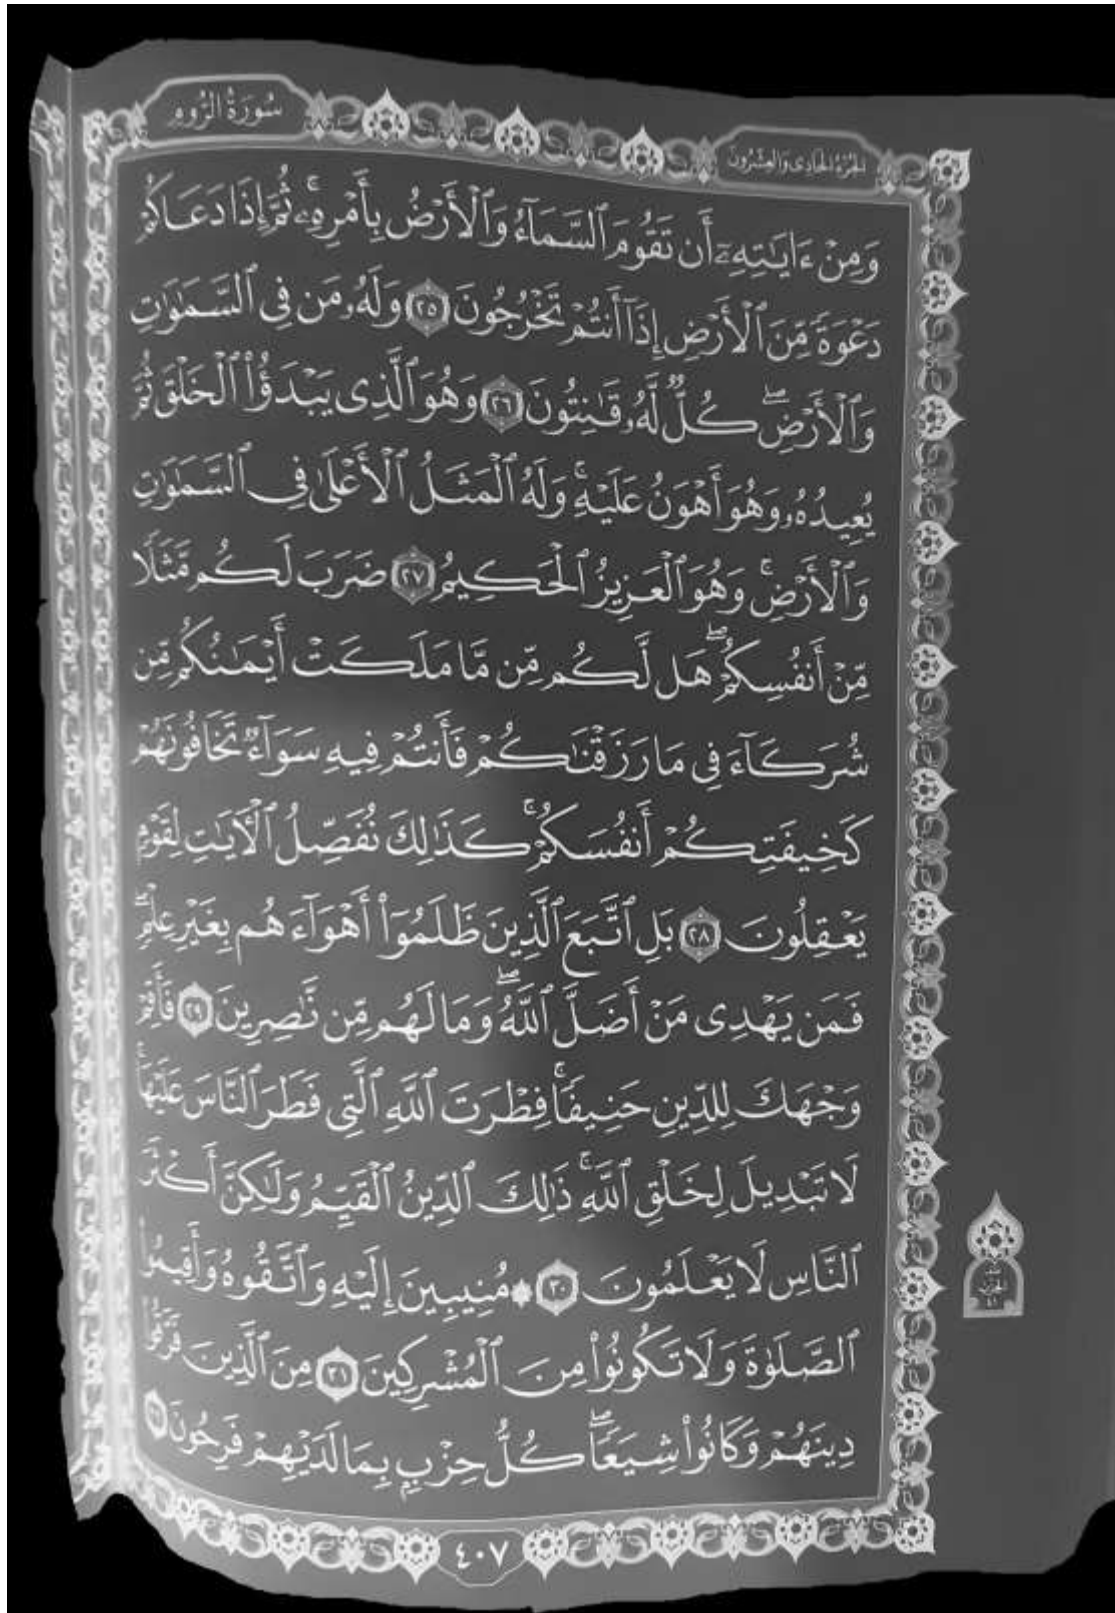 سُورَةُ الرُّومِ
الجُزْءُ الحَادِى وَالعِشْرُونَ
وَمِنْ ءَايَٰتِهِۦٓ أَن تَقُومَ ٱلسَّمَآءُ وَٱلْأَرْضُ بِأَمْرِهِۦۚ ثُمَّ إِذَا دَعَاكُمْ
دَعْوَةً مِّنَ ٱلْأَرْضِ إِذَآ أَنتُمْ تَخْرُجُونَ ٢٥ وَلَهُۥ مَن فِى ٱلسَّمَٰوَٰتِ
وَٱلْأَرْضِۖ كُلٌّ لَّهُۥ قَٰنِتُونَ ٢٦ وَهُوَ ٱلَّذِى يَبْدَؤُا۟ ٱلْخَلْقَ ثُمَّ
يُعِيدُهُۥ وَهُوَ أَهْوَنُ عَلَيْهِۚ وَلَهُ ٱلْمَثَلُ ٱلْأَعْلَىٰ فِى ٱلسَّمَٰوَٰتِ
وَٱلْأَرْضِۚ وَهُوَ ٱلْعَزِيزُ ٱلْحَكِيمُ ٢٧ ضَرَبَ لَكُم مَّثَلًا
مِّنْ أَنفُسِكُمْۖ هَل لَّكُم مِّن مَّا مَلَكَتْ أَيْمَٰنُكُم مِّن
شُرَكَآءَ فِى مَا رَزَقْنَٰكُمْ فَأَنتُمْ فِيهِ سَوَآءٌ تَخَافُونَهُمْ
كَخِيفَتِكُمْ أَنفُسَكُمْۚ كَذَٰلِكَ نُفَصِّلُ ٱلْءَايَٰتِ لِقَوْمٍ
يَعْقِلُونَ ٢٨ بَلِ ٱتَّبَعَ ٱلَّذِينَ ظَلَمُوٓا۟ أَهْوَآءَهُم بِغَيْرِ عِلْمٍۖ
فَمَن يَهْدِى مَنْ أَضَلَّ ٱللَّهُۖ وَمَا لَهُم مِّن نَّٰصِرِينَ ٢٩ فَأَقِمْ
وَجْهَكَ لِلدِّينِ حَنِيفًاۚ فِطْرَتَ ٱللَّهِ ٱلَّتِى فَطَرَ ٱلنَّاسَ عَلَيْهَاۚ
لَا تَبْدِيلَ لِخَلْقِ ٱللَّهِۚ ذَٰلِكَ ٱلدِّينُ ٱلْقَيِّمُ وَلَٰكِنَّ أَكْثَرَ
ٱلنَّاسِ لَا يَعْلَمُونَ ٣٠ ۞ مُنِيبِينَ إِلَيْهِ وَٱتَّقُوهُ وَأَقِيمُوا۟
ٱلصَّلَوٰةَ وَلَا تَكُونُوا۟ مِنَ ٱلْمُشْرِكِينَ ٣١ مِنَ ٱلَّذِينَ فَرَّقُوا۟
دِينَهُمْ وَكَانُوا۟ شِيَعًاۖ كُلُّ حِزْبٍۭ بِمَا لَدَيْهِمْ فَرِحُونَ ٣٢
٤٠٧